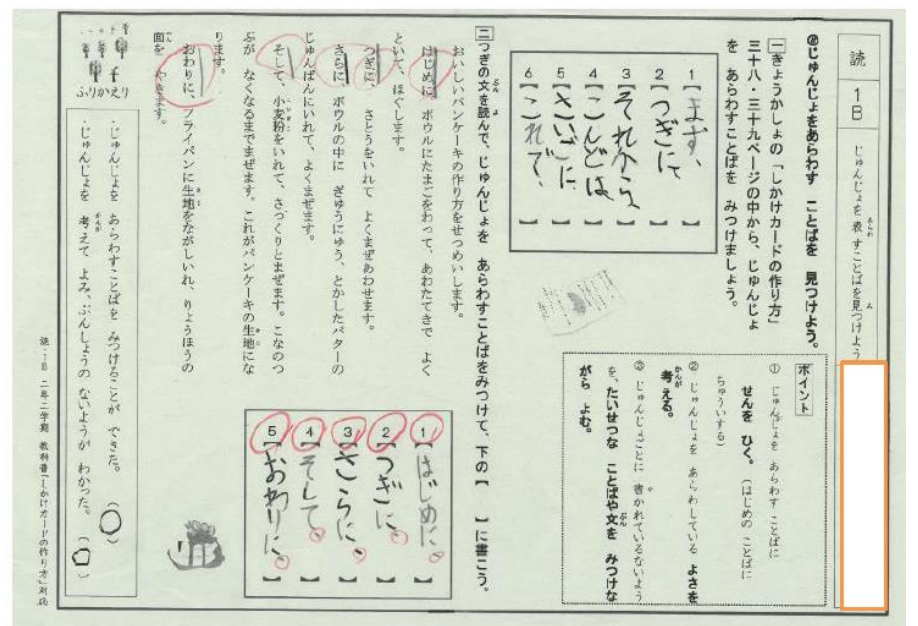 読
1B
じゅんじょを表すことばを見つけよう
◎じゅんじょをあらわす ことばを 見つけよう。
一 きょうかしょの「しかけカードの作り方」
三十八・三十九ページの中から、じゅんじょ
を あらわすことばを みつけましょう。
1【まず、】
2【つぎに、】
3【それから】
4【こんどは】
5【さいごに】
6【これで、】
ポイント
① じゅんじょを あらわす ことばに
せんを ひく。(はじめの ことばに
ちゅういする)
② じゅんじょを あらわしている よさを
考える。
③ じゅんじょごとに 書かれているないよう
を、たいせつな ことばや文を みつけな
がら よむ。
二 つぎの文を読んで、じゅんじょを あらわすことばをみつけて、下の【 】に書こう。
おいしいパンケーキの作り方をせつめいします。
はじめに、ボウルにたまごをわって、あわたてきで よく
といて、ほぐします。
つぎに、 さとうをいれて よくまぜあわせます。
さらに、ボウルの中に ぎゅうにゅう、とかしたバターの
じゅんばんにいれて、よくまぜます。
そして、小麦粉をいれて、さっくりとまぜます。こなのつ
ぶが なくなるまでまぜます。これがパンケーキの生地にな
ります。
おわりに、フライパンに生地をながしいれ、りょうほうの
面を やきます。
1【はじめに、】
2【つぎに、】
3【さらに、】
4【そして、】
5【おわりに、】
ふりかえり
・じゅんじょを あらわすことばを みつけることが できた。 (○)
・じゅんじょを 考えて よみ、ぶんしょうの ないようが わかった。 (○)
読-1B 二年二学期 教科書「しかけカードの作り方」対応